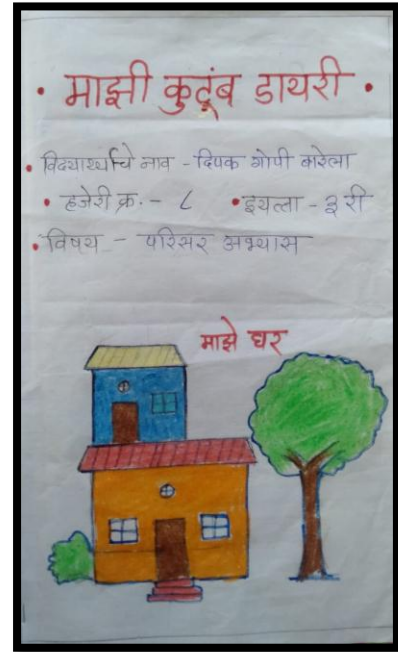 • माझी कुटूंब डायरी •
• विद्यार्थ्याचे नाव - दिपक गोपी बारेला
• हजेरी क्र. - ८ • इयत्ता - ३ री
• विषय - परिसर अभ्यास
माझे घर